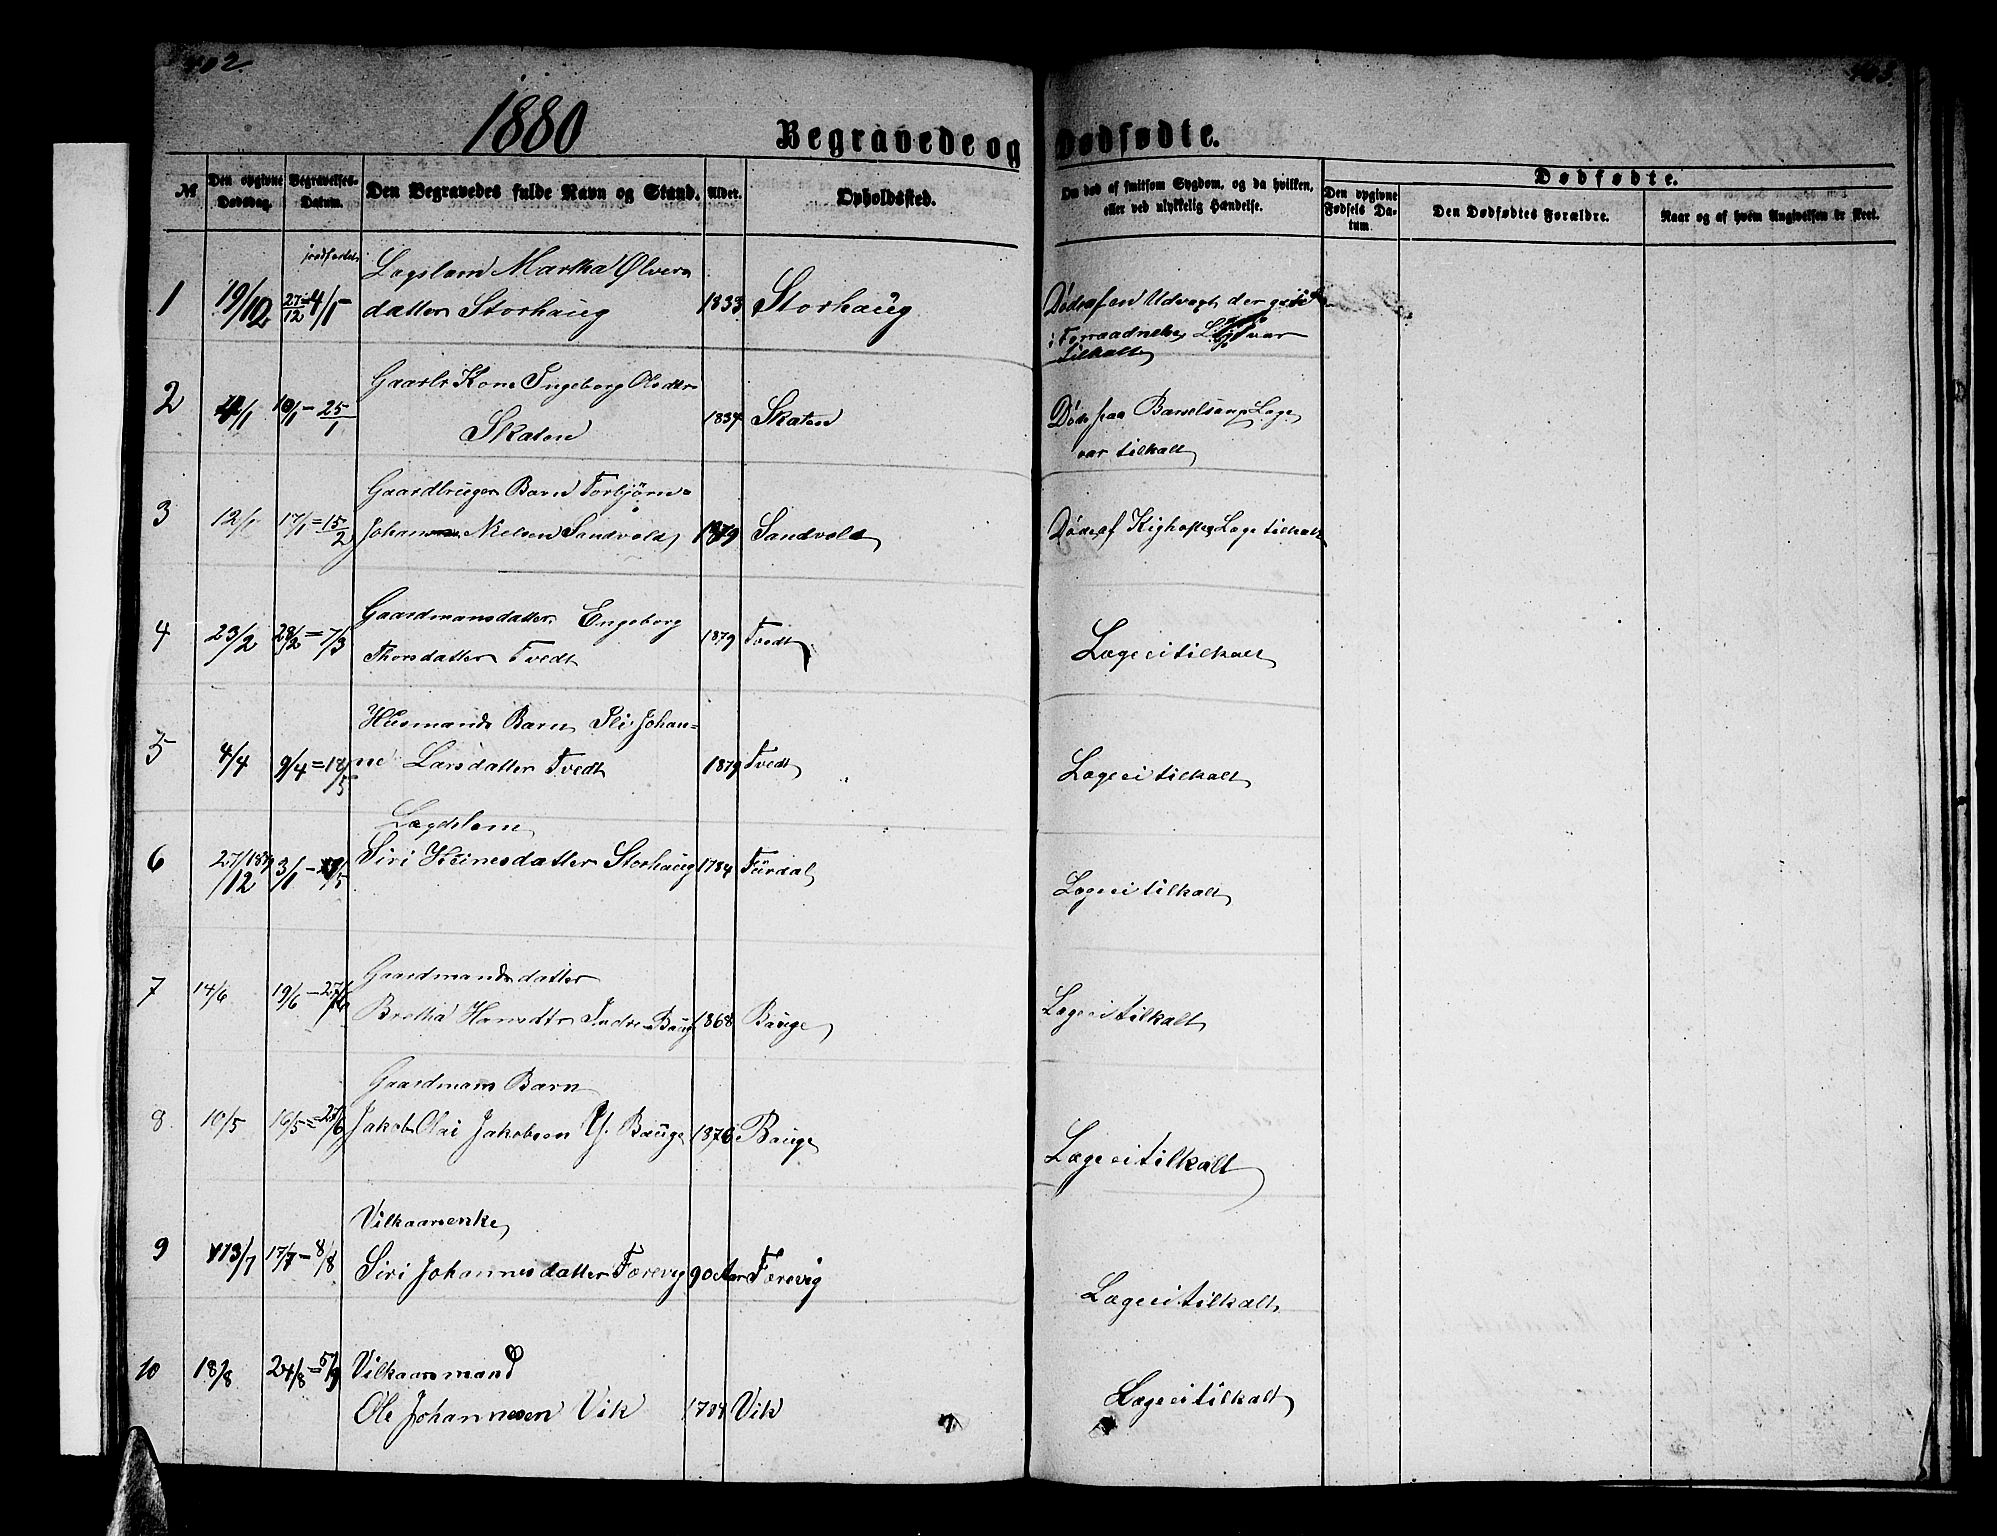 402
403
1880
Begravede og Dødfødte.
№
Den opgivne Dødsdag.
Begravelses-Datum.
Den Begravedes fulde Navn og Stand.
Alder.
Opholdssted.
Om død af smitsom Sygdom, og da hvilken, eller ved ulykkelig Hændelse.
Dødfødte.
Den opgivne Fødsels Datum.
Den Dødfødtes Forældre.
Naar og af hvem Angivelsen er skeet.
jordfæstet
Lægslem Martha Ølvers
1 19/12 27/12 = 4/1 datter Storhaug 1833 Storhaug
Død af en Udvæxt der gik
i Forraadnelse Læge var
tilkaldt
Gaardbr Kone Ingeborg Olsdtr
2 4/1 10/1 – 25/1 Skaten 1834 Skaten
Død paa Barselseng Læge
var tilkalt
Gaardbruger Barn Torbjørn
3 12/1 17/1 = 15/2 Johan Nielsen Sandvold 1879 Sandvold
Død af Kighoste Læge tilkalt
Gaardmansdatter Engeborg
4 23/2 28/2 = 7/3 Thorsdatter Tvedt 1879 Tvedt
Læge ei tilkalt
Husmands Barn Eli Johan-
5 4/4 9/4 = 14/5 ne Larsdatter Tvedt 1879 Tvedt
Læge ei tilkalt
Lægdslem
6 27/12 1879 3/1 – /5 Siri Heinesdatter Storhaug 1784 Furdal
Læge ei tilkalt
Gaardmandsdatter
7 14/6 19/6 – 27/6 Bretha Hansdtr Indre Bauge 1868 Bauge
Læge ei tilkalt
Gaardmans Barn
8 10/5 16/5 = 27/6 Jakob Olai Jakobsen Y. Bauge 1876 Bauge
Læge ei tilkalt
Vilkaarsenke
9 13/7 17/7 – 8/8 Siri Johannesdatter Færevig 90 Aar Færevig
Læge ei tilkalt
10 18/8 24/8 = 5/9 Vilkaarsmand
Ole Johannesen Vik 1784 Vik
Læge ei tilkalt